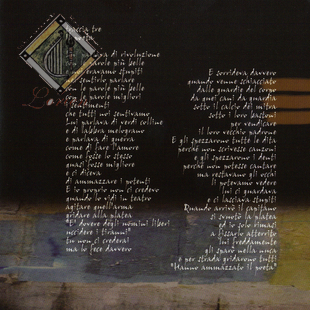 traccia tre
il poeta
Lui parlava di rivoluzione
con le parole più belle
e noi eravamo stupiti
nel sentirlo parlare
con le parole più belle
con le parole migliori
i sentimenti
che tutti noi sentivamo
Lui parlava di verdi colline
e di labbra melograno
e parlava di guerra
come di fare l'amore
come fosse lo stesso
quasi fosse migliore
e ci diceva
di ammazzare i potenti
E io proprio non ci credevo
quando lo vidi in teatro
agitare quell'arma
gridare alla platea
"E' dovere degli uomini liberi
uccidere i tiranni"
tu non ci crederai
ma lo fece davvero
E sorrideva davvero
quando venne schiacciato
dalle guardie del corpo
da quei cani da guardia
sotto il calcio del mitra
sotto i loro bastoni
per vendicare
il loro vecchio padrone
E gli spezzarono tutte le dita
perché non scrivesse canzoni
e gli spezzarono i denti
perché non potesse cantare
ma restavano gli occhi
li potevamo vedere
lui li guardava
e ci lasciava stupiti
Quando arrivò il capitano
si svuotò la platea
ed io solo rimasi
a fissarlo atterrito
lui freddamente
gli sparò nella nuca
e per strada gridarono tutti
"Hanno ammazzato il poeta"